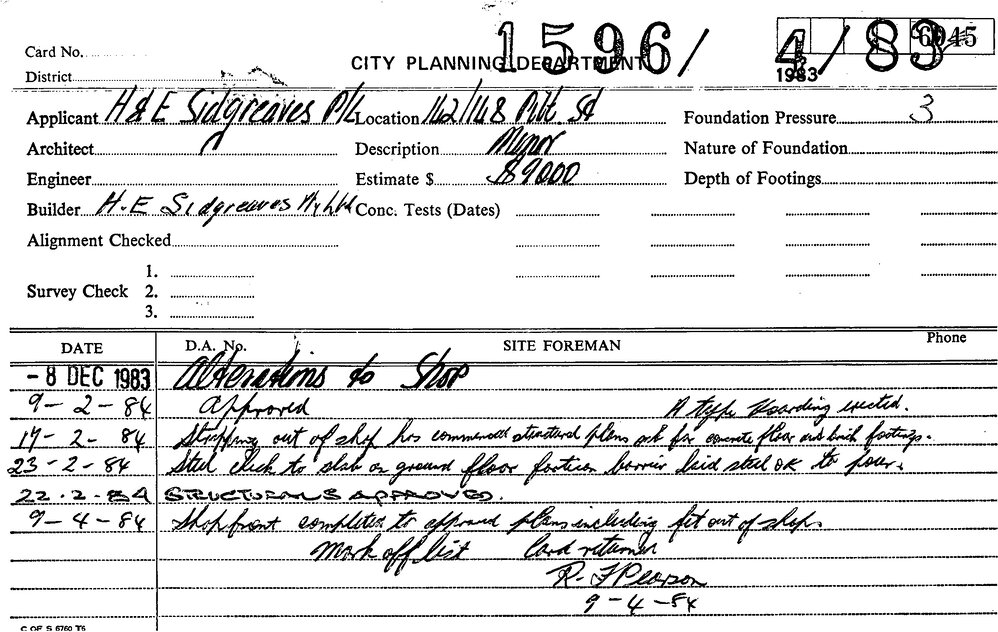 1596/ 4/83
6045
Card No.
CITY PLANNING DEPARTMENT
1983
District
Applicant H & E Sidgreaves P/L Location 142/148 Pitt St Foundation Pressure 3
Architect Description Minor Nature of Foundation
Engineer Estimate $ $9000 Depth of Footings
Builder H.E Sidgreaves Pty Ltd Conc. Tests (Dates)
Alignment Checked
1.
Survey Check 2.
3.
DATE D.A. No. SITE FOREMAN Phone
- 8 DEC 1983 Alterations to Shop
9 - 2 - 84 Approved A type Hoarding erected.
17 - 2 - 84 Stripping out of shop has commenced structural plans ask for concrete floor and brick footings.
23 - 2 - 84 Steel check to slab on ground floor barrier laid steel OK to pour.
22.2-84 STRUCTURALS APPROVED.
9 - 4 - 84 Shop front completed to approved plans including fit out of shop.
Mark off list Card returned
R. F Pearson
9 - 4 - 84
C OF S 6760 T6